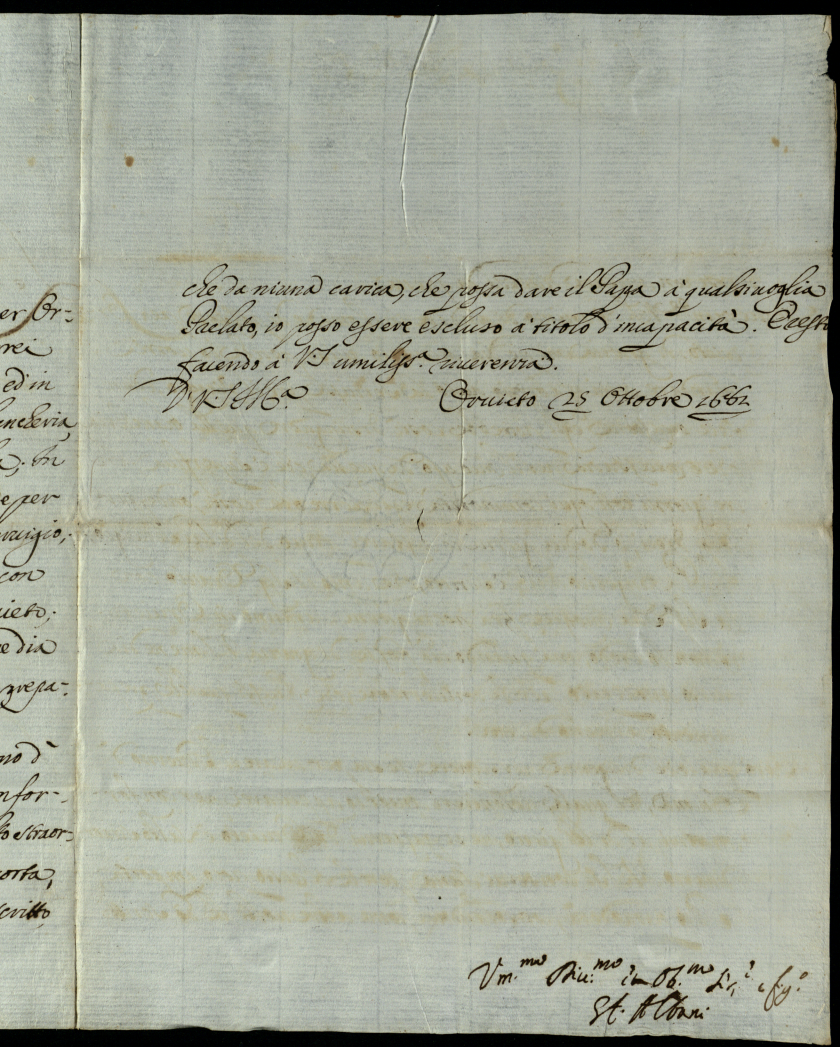 er Or-
rei
ed in
encheria
a; In
e per
ruigio;
con
uieto;
e dia
prepa-
no d'
nfor-
to estraor-
corta,
scritto
che da niuna carica, che possa dare il Papa à qualsiuoglia
Prelato, io posso essere escluso à titolo d'incapacità. E resto
facendo à V.S. umiliss.ª riuerenza.
D. V.S. Ill.ª Oruieto 25 Ottobre 1662
Vm.mo Diu.mo Ob.mo
Albani